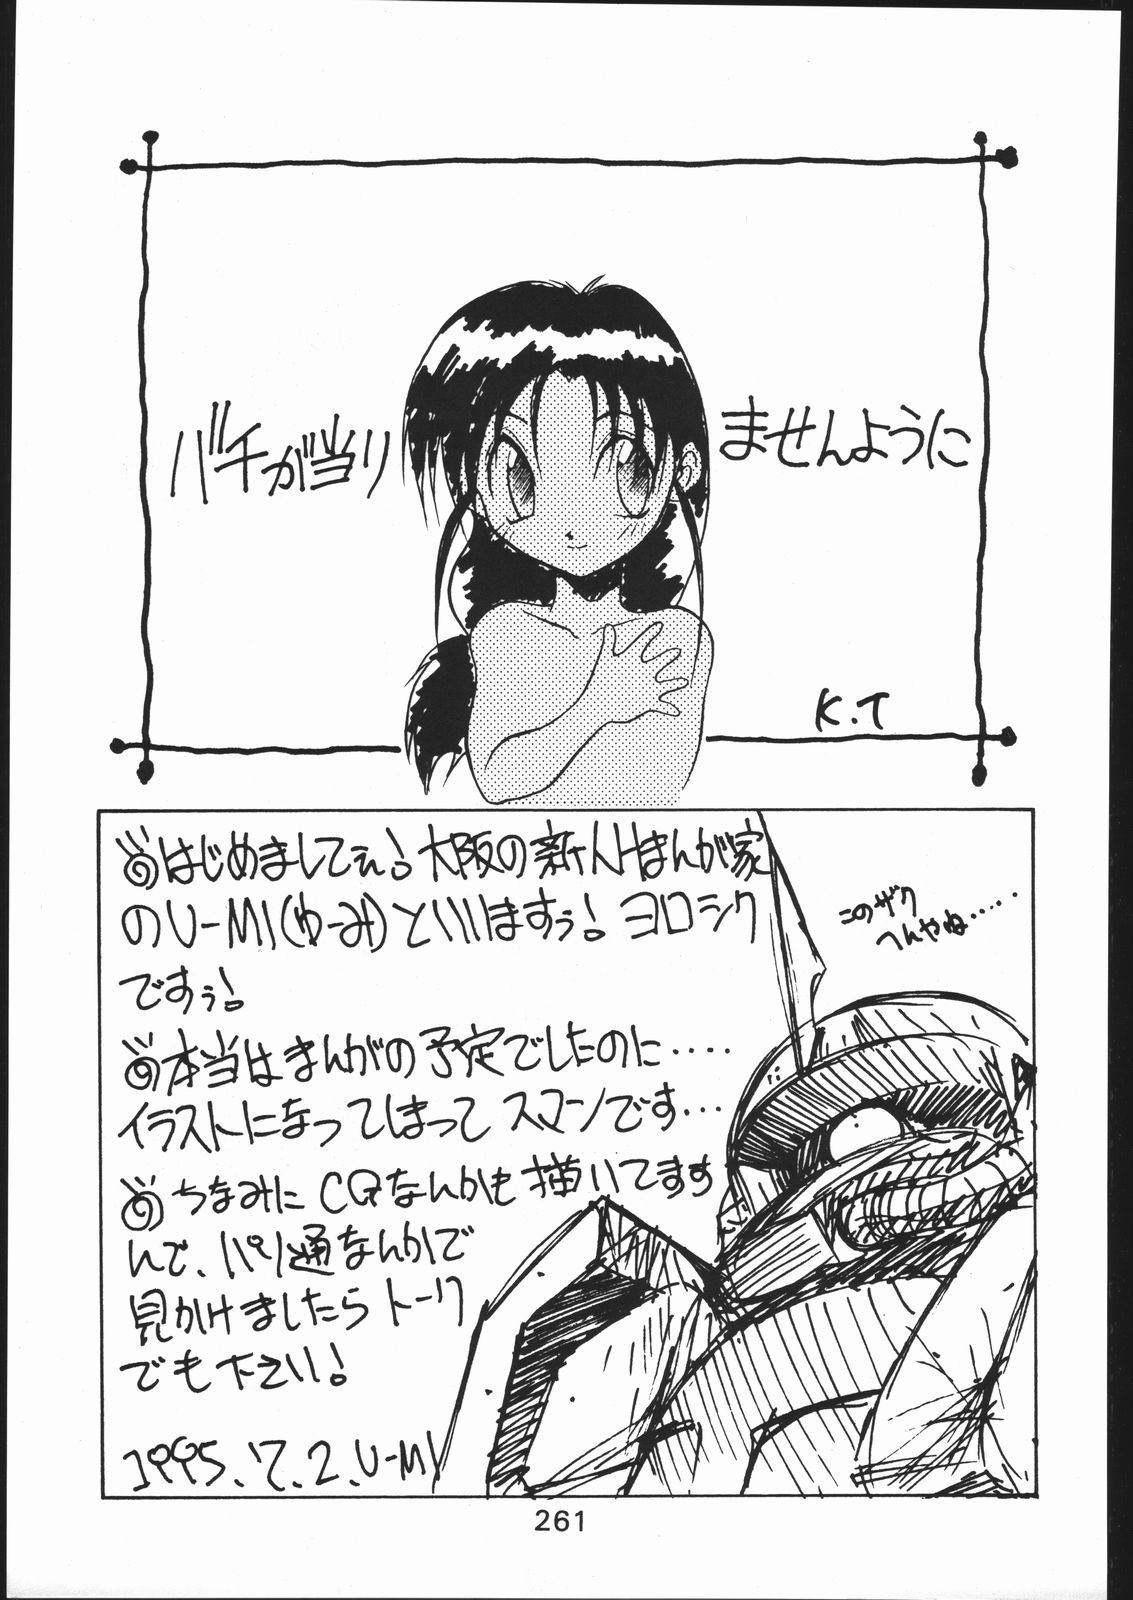 バチが当り ませんように
K.T
はじめましてぇ！大阪の新人Hまんが家
のU-MI(ゆーみ)といいますぅ！ヨロシク
ですぅ！
本当はまんがの予定でしたのに‥‥
イラストになってしまってスマンです…
ちなみにCGなんかも描いてます
んで、パソ通なんかで
見かけましたらトーク
でも下さい！
1995.7.2.U-MI
このザク
へんやね‥‥‥
261